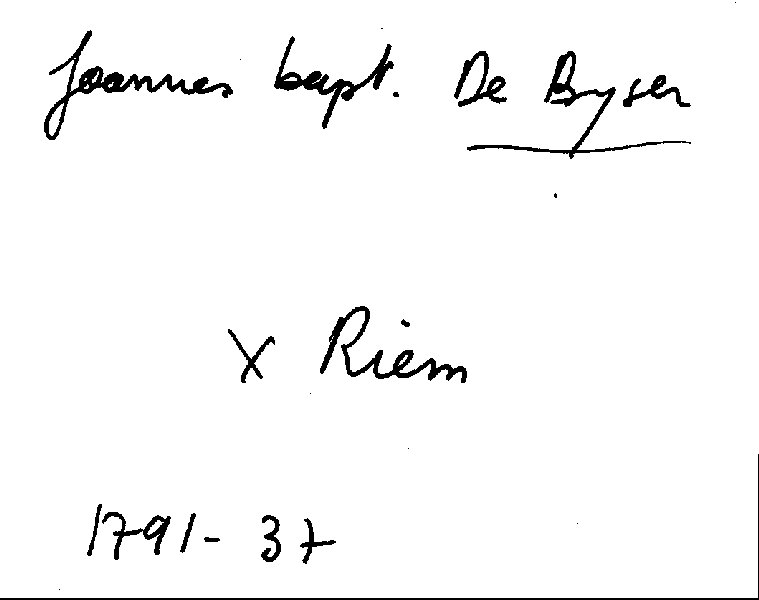 Joannes bapt. De Byser
x Riem
1791-37